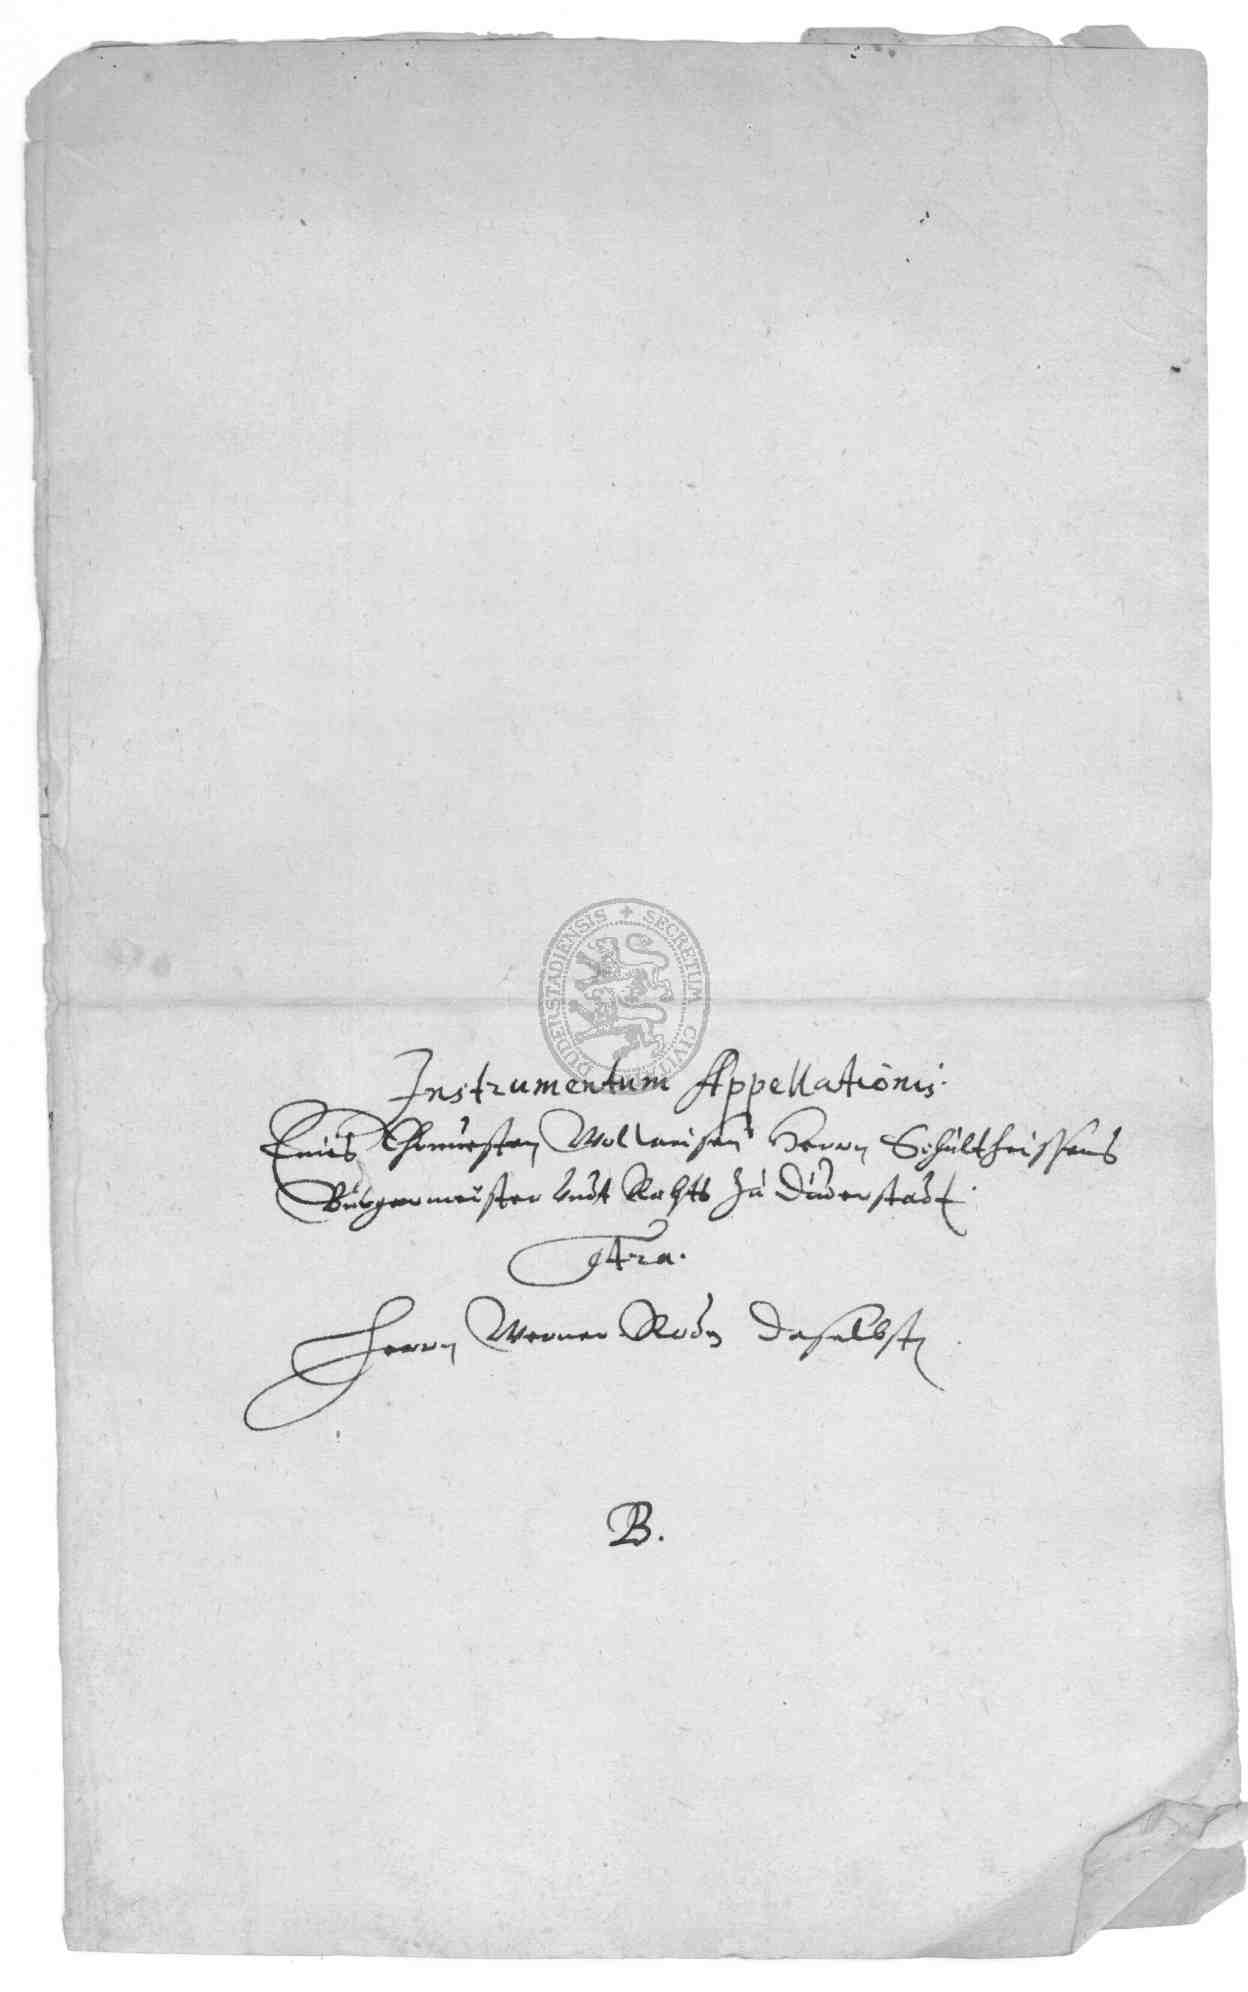 SECRETUM CIVITA DUDERSTADIENSIS
Instrumentum Appellationis
Eines Ehrnuesten Wollweisen Herrn Schultheissens
Burgermeister vndt Rahts zu Duderstadt
Ctra.
Herrn Werner Rodn daselbsten
B.